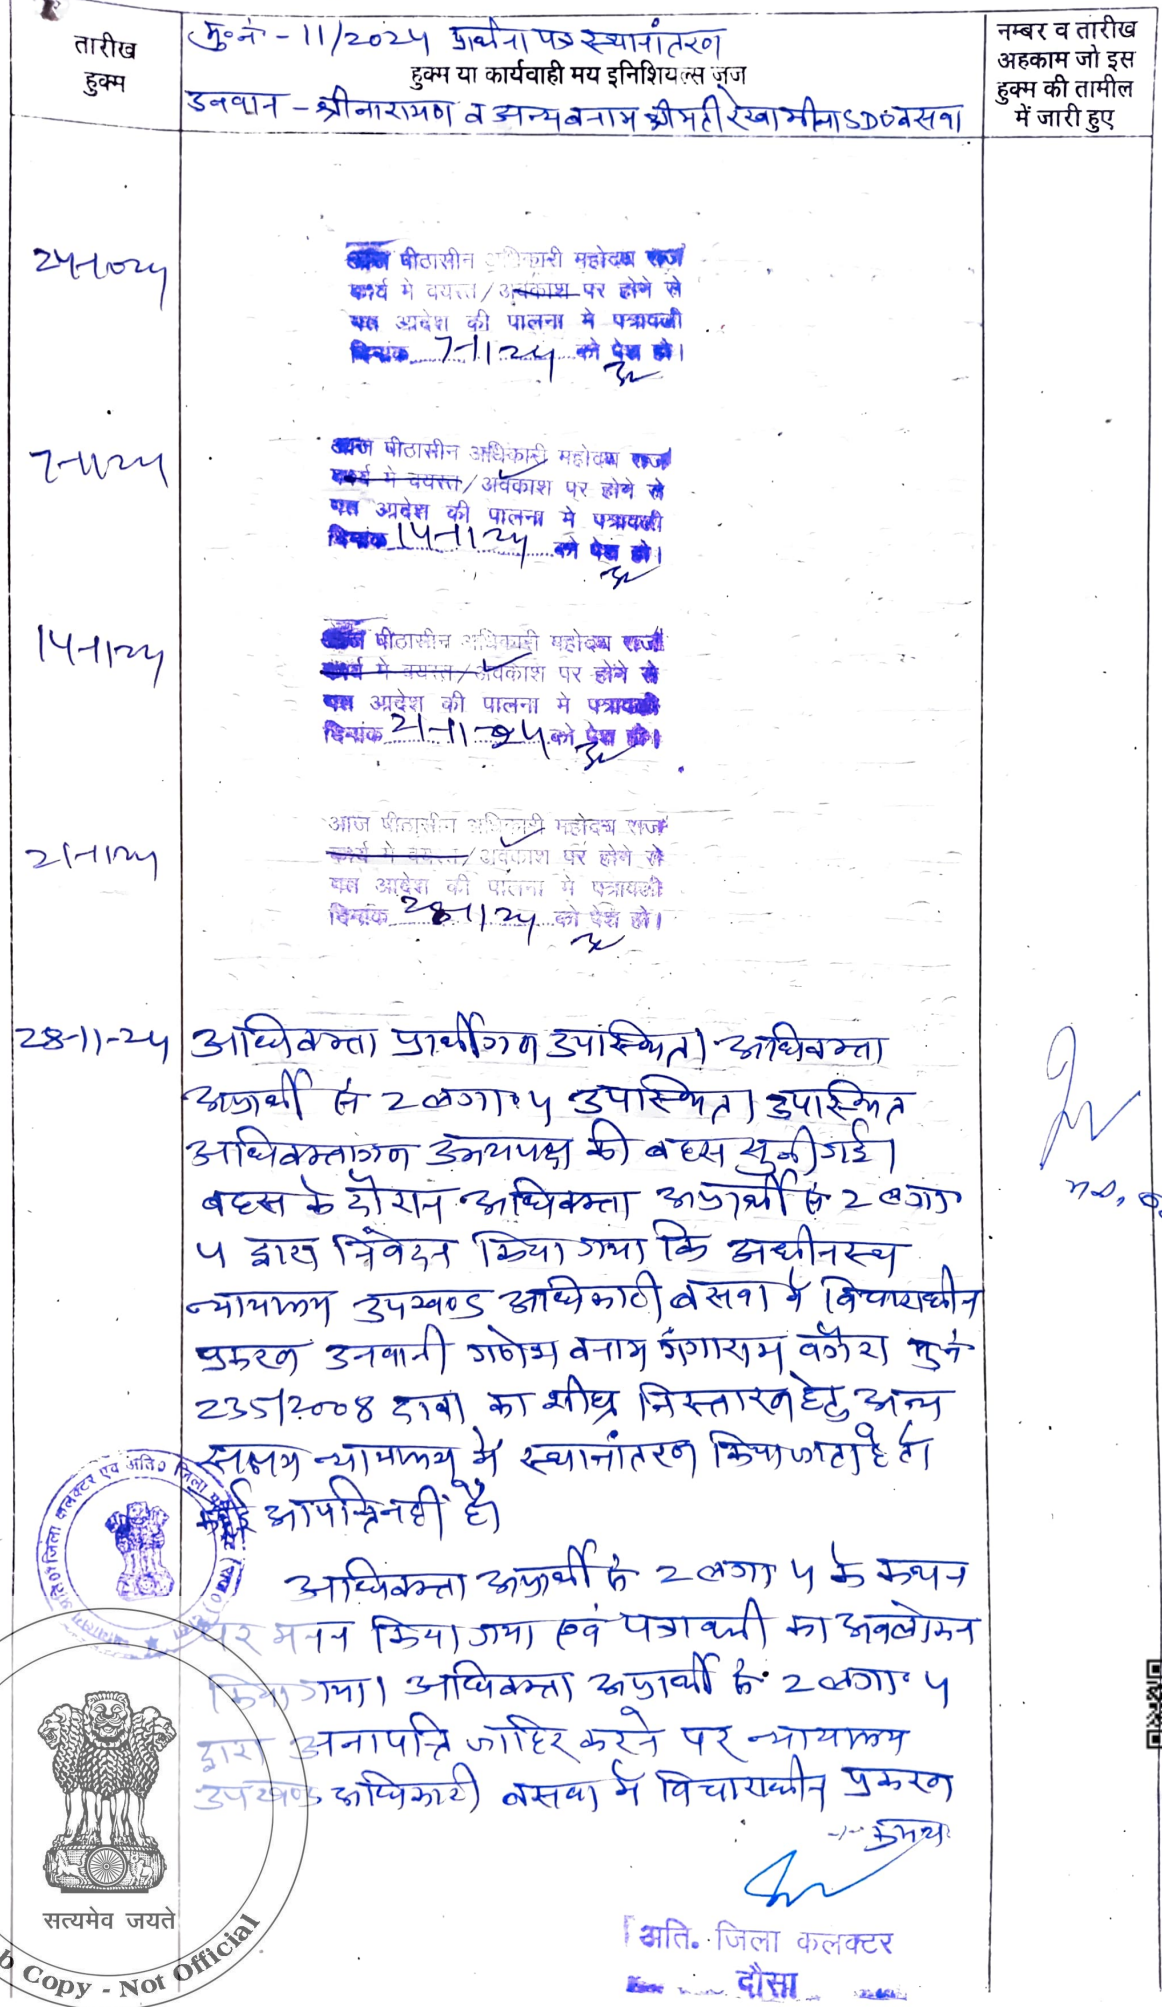 तारीख
हुक्म
मु०नं०-11/2024 प्रार्थना पत्र स्थानांतरण
हुक्म या कार्यवाही मय इनिशियल्स जज
उनवान - श्रीनारायण व अन्य बनाम श्रीमती रेखा मीना SDO बसवा
नम्बर व तारीख
अहकाम जो इस
हुक्म की तामील
में जारी हुए
आज पीठासीन अधिकारी महोदय राज
कार्य मे वयस्त/अवकाश पर होने से
आदेश की पालना मे पत्रावली
दिनांक 7-11-24 को पेश हो।
7-11-24
आज पीठासीन अधिकारी महोदय राज
कार्य मे वयस्त/अवकाश पर होने से
आदेश की पालना मे पत्रावली
दिनांक 14-11-24 को पेश हो।
14-11-24
आज पीठासीन अधिकारी महोदय राज
कार्य मे वयस्त/अवकाश पर होने से
आदेश की पालना मे पत्रावली
दिनांक 21-11-24 को पेश हो।
21-11-24
आज पीठासीन अधिकारी महोदय राज
कार्य मे वयस्त/अवकाश पर होने से
आदेश की पालना मे पत्रावली
दिनांक 28-11-24 को पेश हो।
28-11-24
अधिवक्ता प्रार्थीगण उपस्थित। अधिवक्ता
अप्रार्थी सं 2 लगा० 4 उपस्थित। उपस्थित
अधिवक्तागण उभयपक्ष की बहस सुनी गई।
बहस के दौरान अधिवक्ता अप्रार्थी सं 2 लगा०
4 द्वारा निवेदन किया गया कि अधीनस्थ
न्यायालय उपखण्ड अधिकारी बसवा में विचाराधीन
प्रकरण उनवानी गणेश बनाम गंगाराम वगैरा मु०नं०
235/2008 दावा का शीघ्र निस्तारण हेतु अन्य
सक्षम न्यायालय में स्थानांतरण किया जाता है तो
कोई आपत्ति नहीं है।
अधिवक्ता अप्रार्थी सं 2 लगा० 4 के कथन
पर मनन किया गया एवं पत्रावली का अवलोकन
किया गया। अधिवक्ता अप्रार्थी सं 2 लगा० 4
द्वारा अनापत्ति जाहिर करने पर न्यायालय
उपखण्ड अधिकारी बसवा में विचाराधीन प्रकरण
अति. जिला कलक्टर
दौसा
सत्यमेव जयते
Copy - Not Official